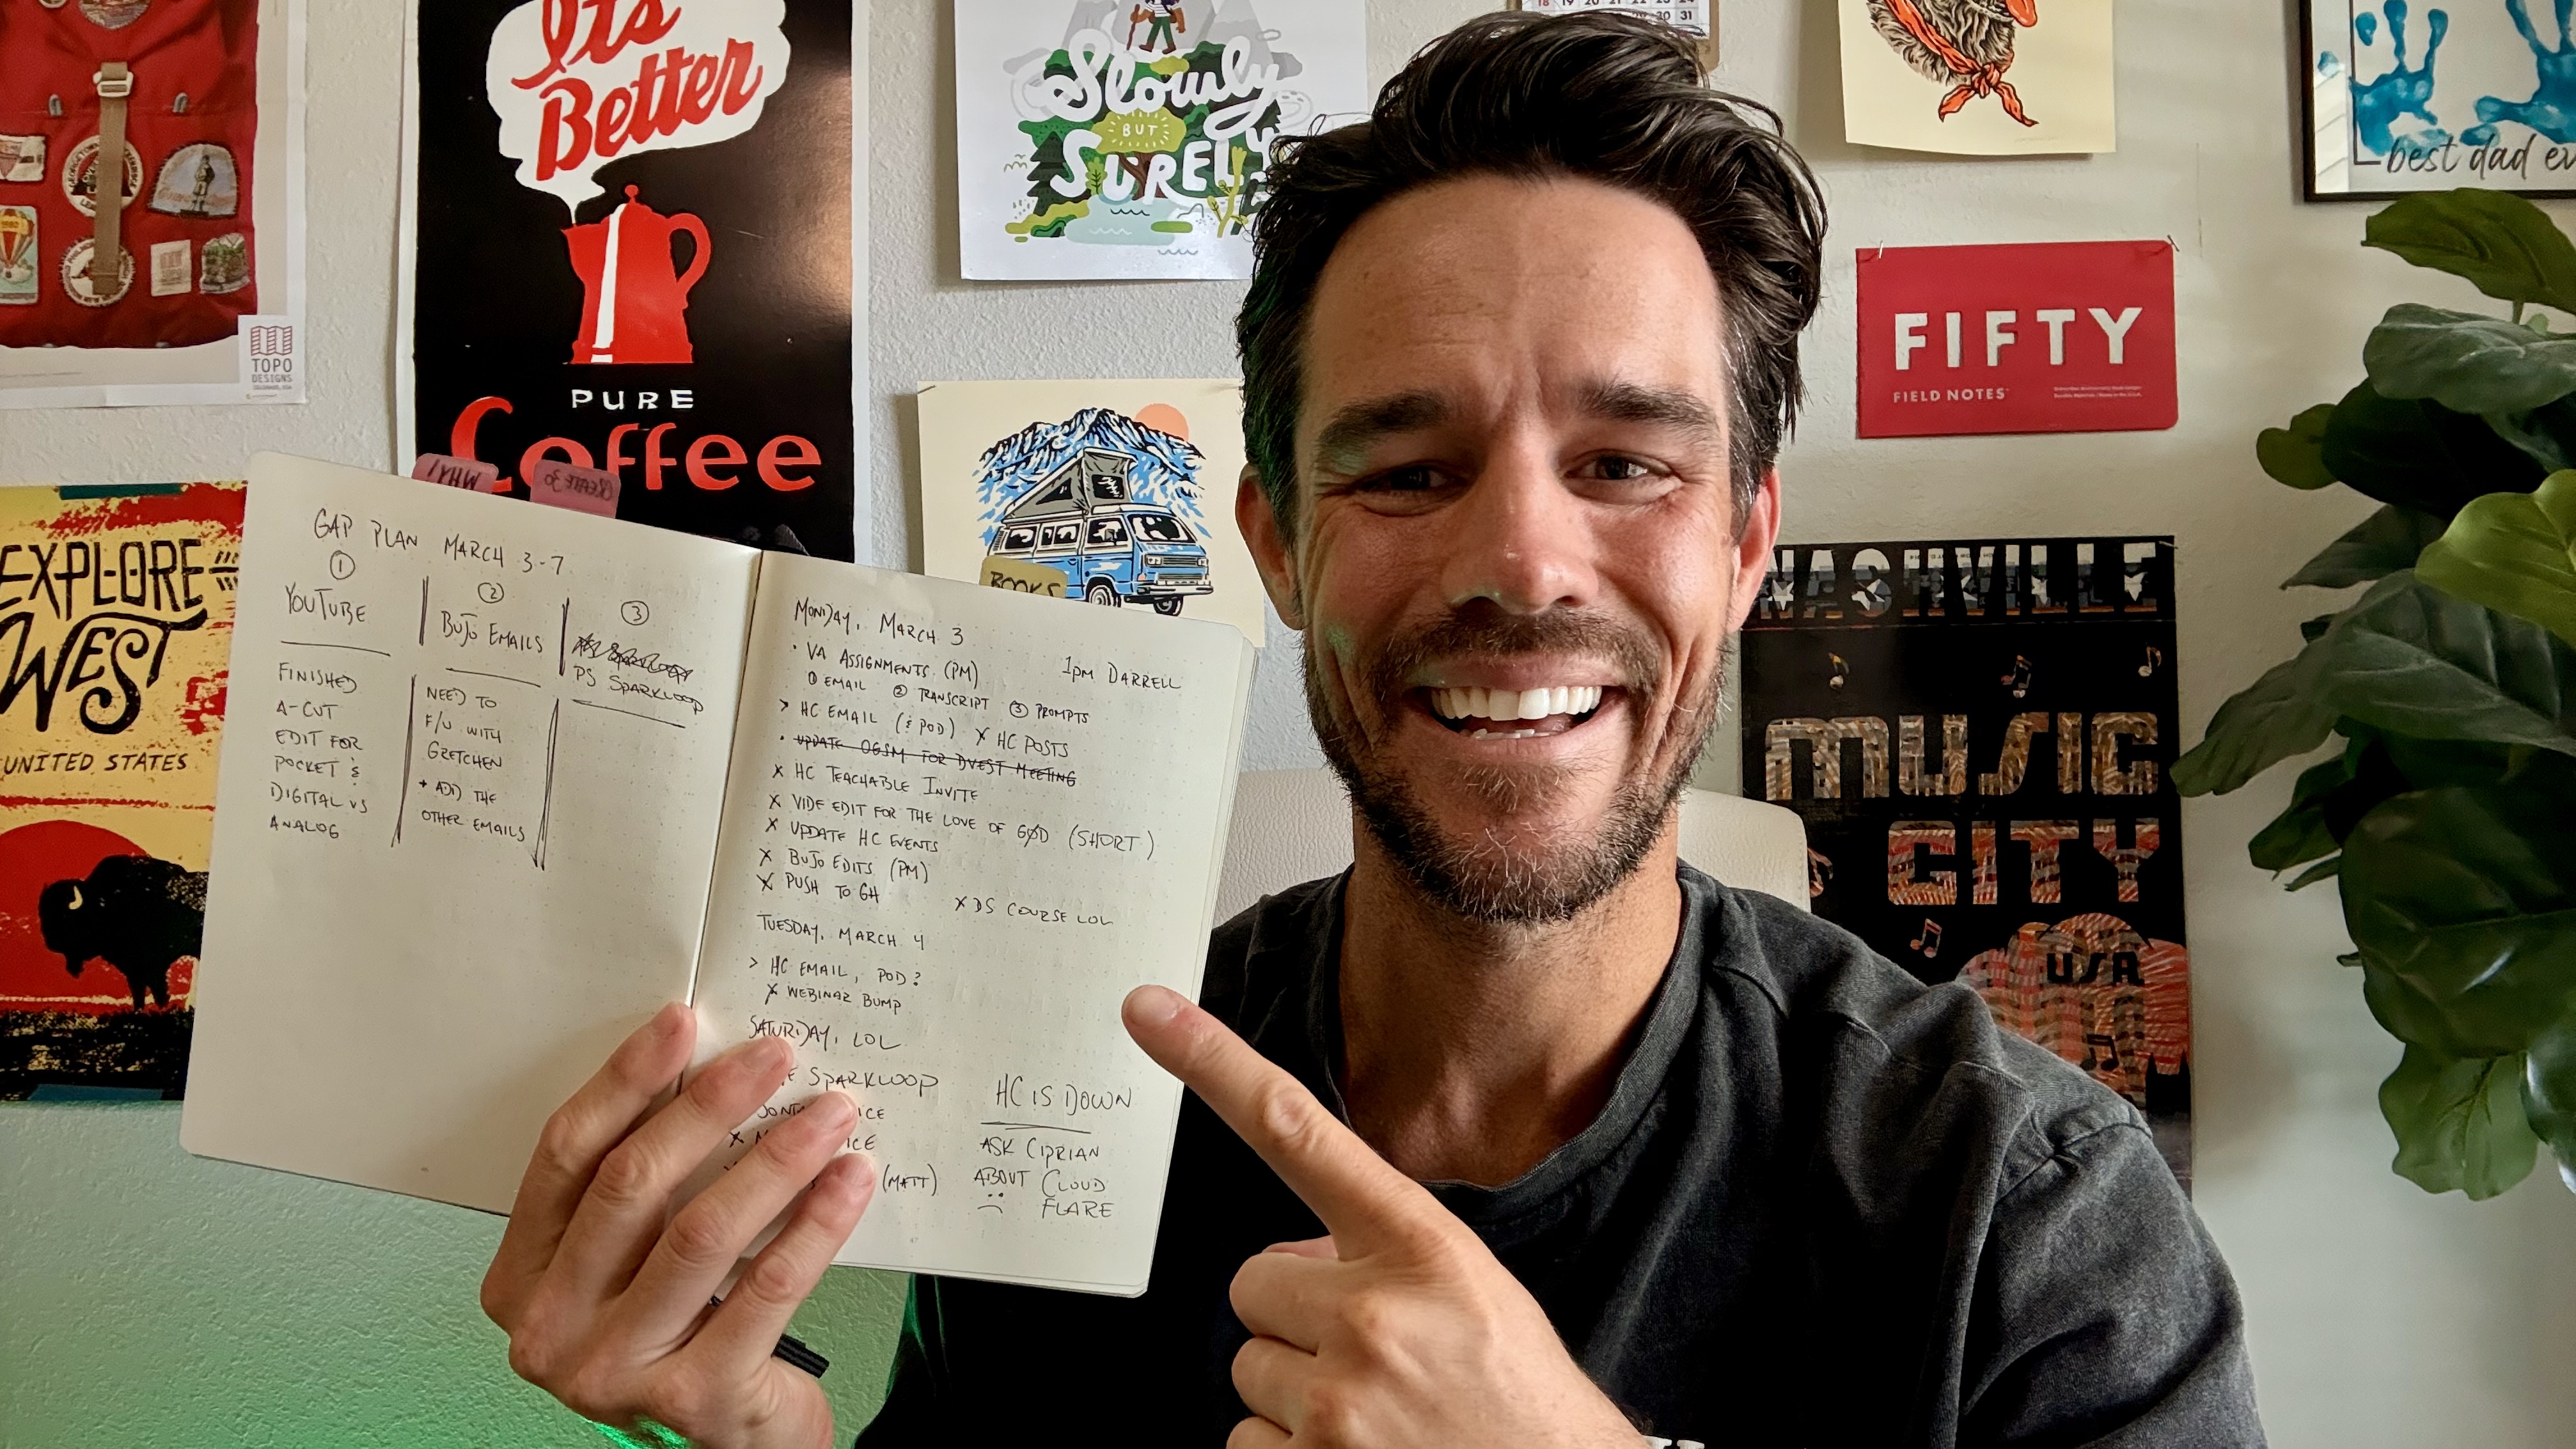 It's
Better
PURE
Coffee
TOPO
DESIGNS
Slowly
BUT
SURELY
18 19 20 21 22 23 24
29 30 31
best dad ev
FIFTY
FIELD NOTES
EXPLORE
WEST
UNITED STATES
NASHVILLE
MUSIC
CITY
USA
WHY
CREATE 30
BOOKS
GAP PLAN MARCH 3-7
①
YOUTUBE
FINISHED
A-CUT
EDIT FOR
POCKET &
DIGITAL VS
ANALOG
②
BUJO EMAILS
NEED TO
F/U WITH
GRETCHEN
+ ADD THE
OTHER EMAILS
③
PS SPARKLOOP
MONDAY, MARCH 3
1PM DARRELL
• VA ASSIGNMENTS (PM)
① EMAIL ② TRANSCRIPT ③ PROMPTS
> HC EMAIL (& POD) X HC POSTS
• UPDATE OGSM FOR DVEST MEETING
X HC TEACHABLE INVITE
X VIDE EDIT FOR THE LOVE OF GOD (SHORT)
X UPDATE HC EVENTS
X BUJO EDITS (PM)
X PUSH TO GH
X DS COURSE LOL
TUESDAY, MARCH 4
> HC EMAIL, POD?
X WEBINAR BUMP
SATURDAY, LOL
SPARKLOOP
(MATT)
HC IS DOWN
ASK CIPRIAN
ABOUT CLOUD
FLARE